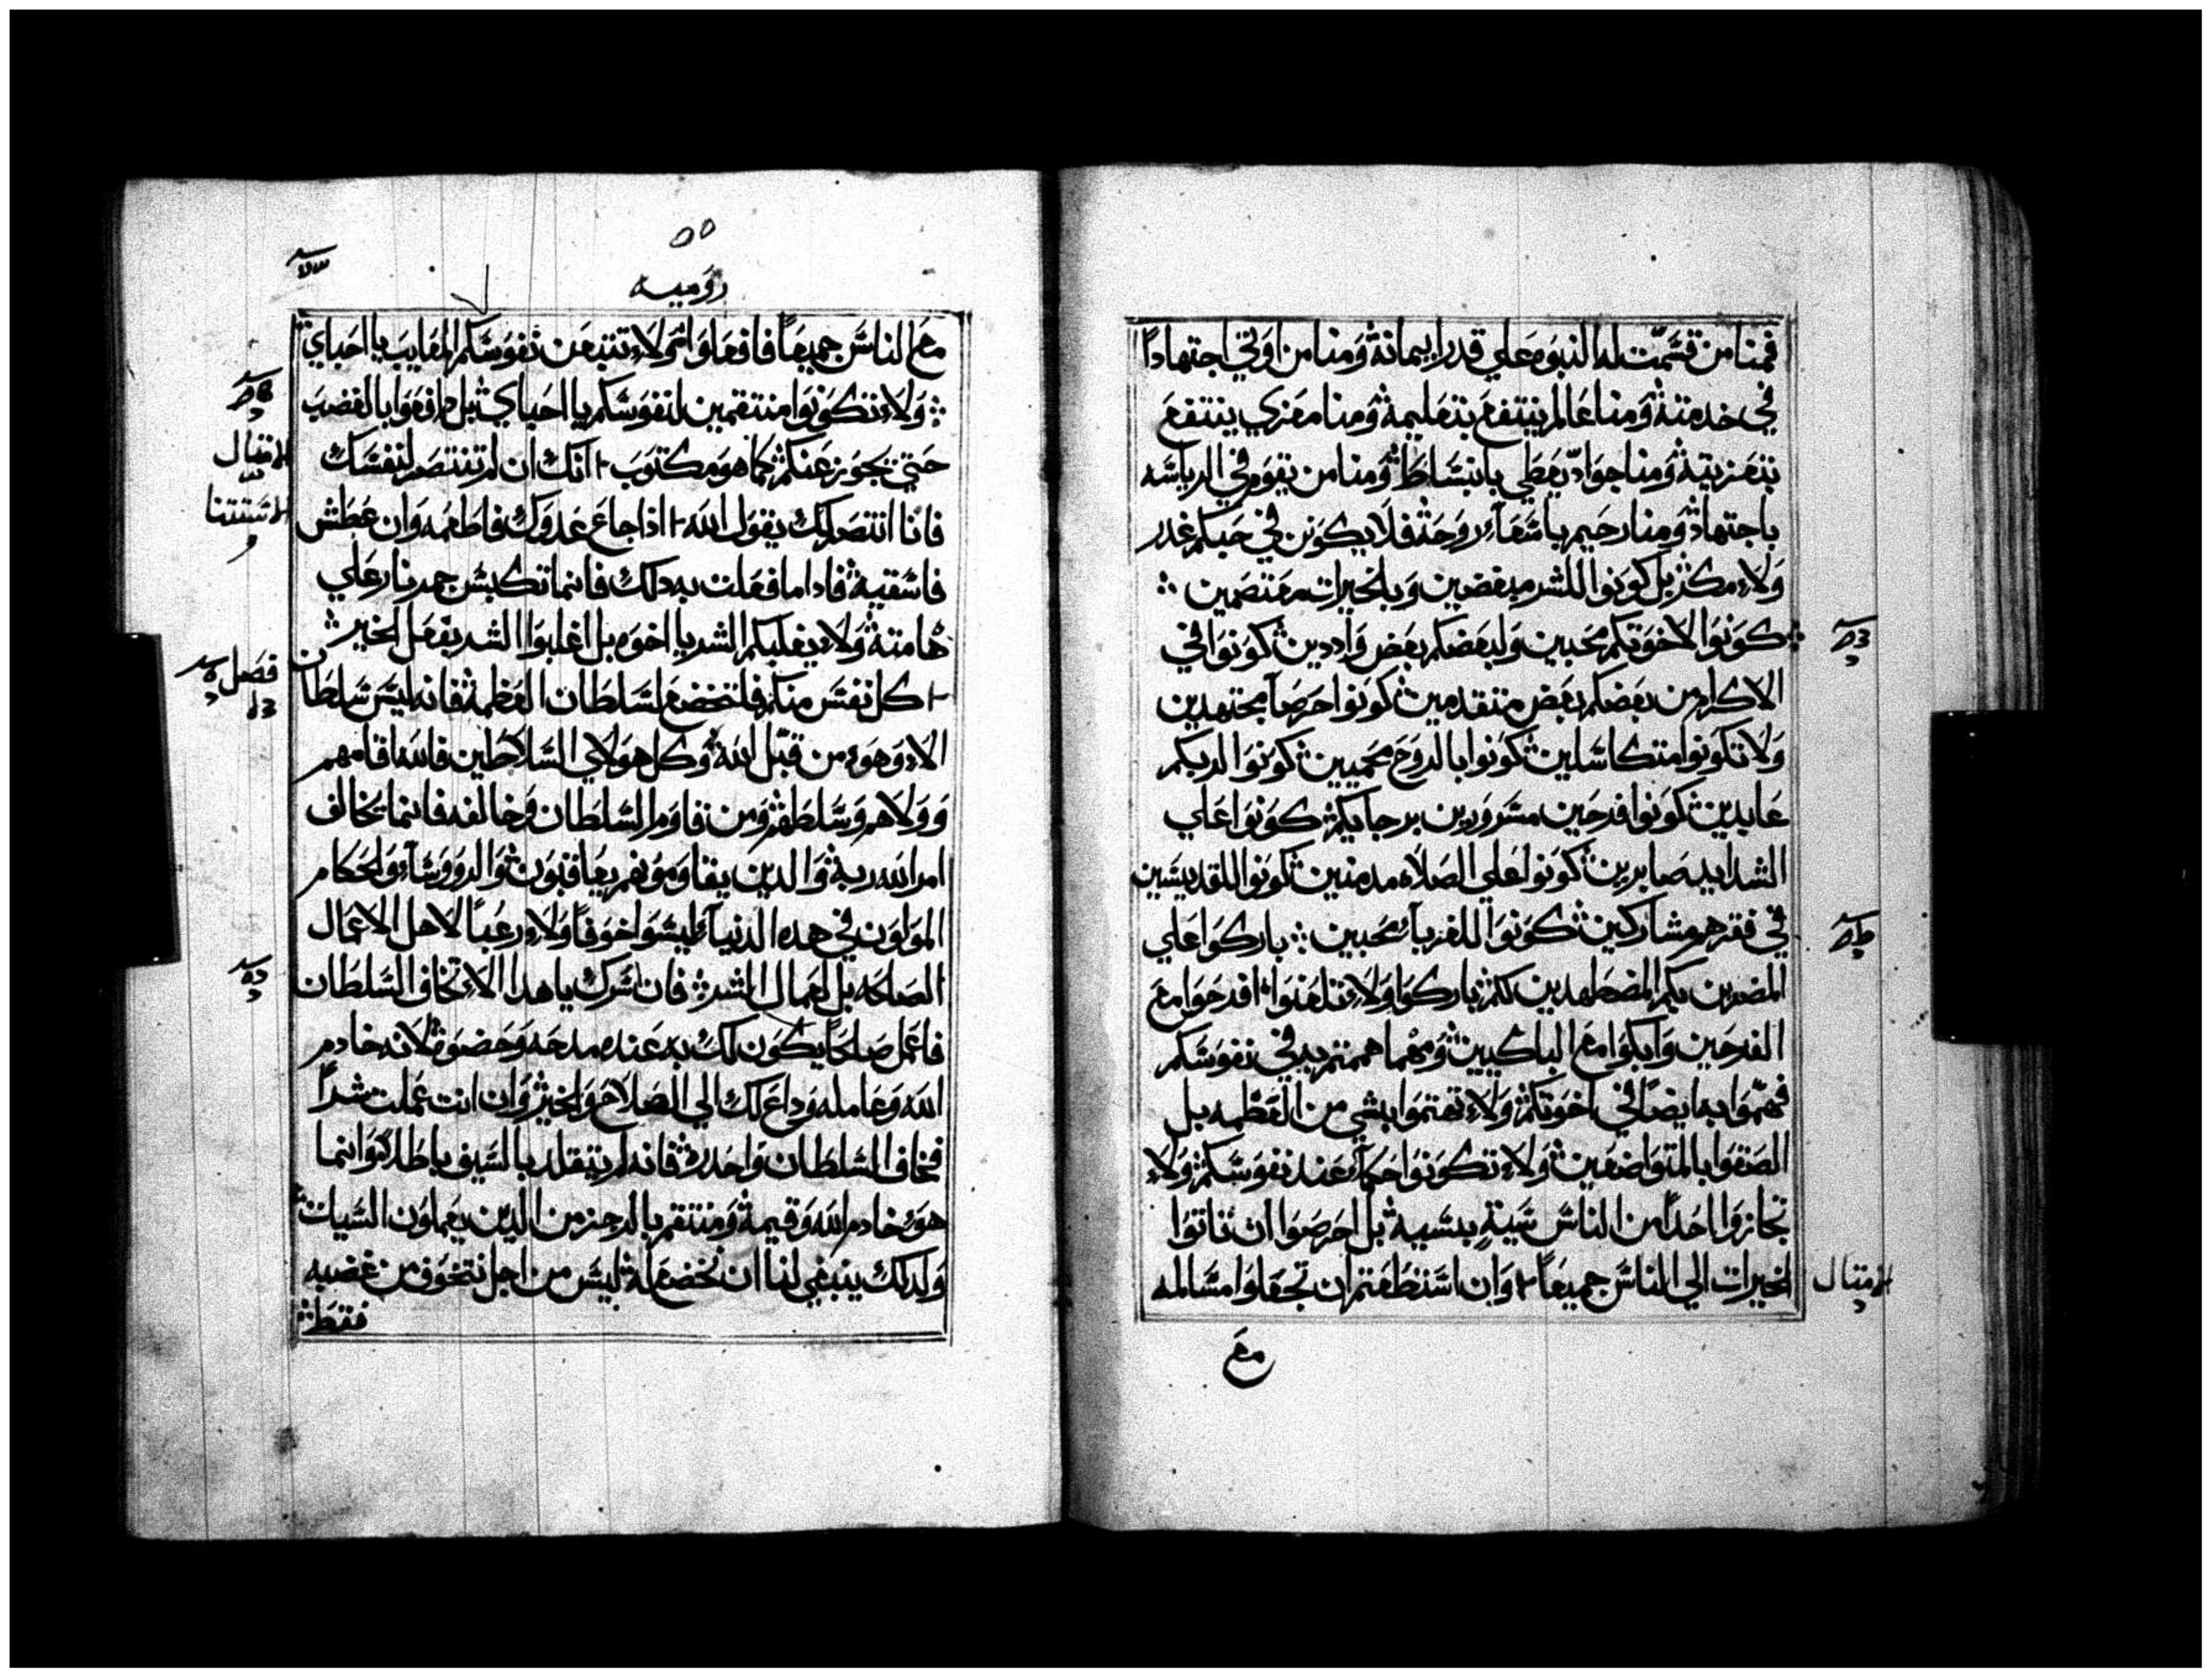 فمنا من قسّمت له النبوه علي قدر ايمانه ومنا من اوتي اجتهاداً
في خدمته ومنا عالم ينتفع بتعليمه ومنا معزي ينتفع
بتعزيته ومنا جوادّ يعطي بانبساط ومنا من يقوم في الرياسه
باجتهاد ومنا رحيم باسفآء روحه فلا يكونن في حبكم غدر
ولا مكر بل كونوا للشر مبغضين وبالخيرات معتصمين
كونوا لاخوتكم محبين ولبعضكم بعض وآددين كونوا في
الاكرام من بعضكم بعض متقدمين كونوا حرصآ مجتهدين
ولا تكونوا متكاسلين كونوا بالروح محميين كونوا لربكم
عابدين كونوا فرحين مسرورين برجايكم كونوا علي
الشدايد صابرين كونوا علي الصلاه مدمنين كونوا للقديسين
في فقرهم مشاركين كونوا للغربآء محبين باركوا علي
المضرين بكم المضطهدين لكم باركوا ولا تلعنوا افرحوا مع
الفرحين وابكوا مع الباكيين ومهما هممتم به في نفوسكم
فهمّوا به ايضاً في اخوتكم ولا تهتموا بشي من العظمه بل
الصقوا بالمتواضعين ولا تكونوا حكمآء عند نفوسكم ولا
تجازوا احداً من الناس سية بسيه بل احرصوا ان تاتوا
الخيرات الي الناس جميعاً وان استطعتم ان تجعلوا مسالمه
مع
٥٥
روميه
مع الناس جميعاً فافعلوا انتم ولا تنتبعن نفوسكم المعايب يا احباي
ولا تكونوا منتقمين لنفوسكم يا احباي بل ادفعوا بالغضب
حتي يجوز عنكم كما هو مكتوب انك ان لم تنتصر لنفسك
فانا انتصر لك يقول الله اذا جاع عدوك فاطعمه وان عطش
فاسقيه فاداما فعلت به دلك فانما تكبس جمر نار علي
هامته ولا يغلبكم الشر يا اخوه بل اغلبوا الشر بفعل الخير
كل نفس منكم فلتخضع لسلطان العظمه فانه ليس سلطان
الا وهو من قبّل الله وكل هولاي السلاطين فالله اقامهم
وولاهم وسلطهم ومن قاوم السلطان وخالفه فانما يخالف
امر الله ربه والدين يقاومونهم يعاقبون والرووسآء والحكام
المولون في هده الدنيآء ليسوا خوفاً ولا رعباً لاهل الاعمال
الصالحه بل لعمال الشر فان سرك يا هدا الا تخاف السلطان
فاعمل صالحاً يكون لك به عنده مدحه وحضوه لانه خادم
الله وعامله وداع لك الي الصلاح والخير وان انت عملت شراً
فخاف السلطان واحدره فانه لم يتقلد بالسيف باطلا وانما
هو خادم الله وقيمه ومنتقم بالرجز من الدين يعملون السيات
ولدلك ينبغي لنا ان نخضع له ليس من اجل نتخوف من غضبه
فقط
الامتال
الامتال
الاستتنا
فصل